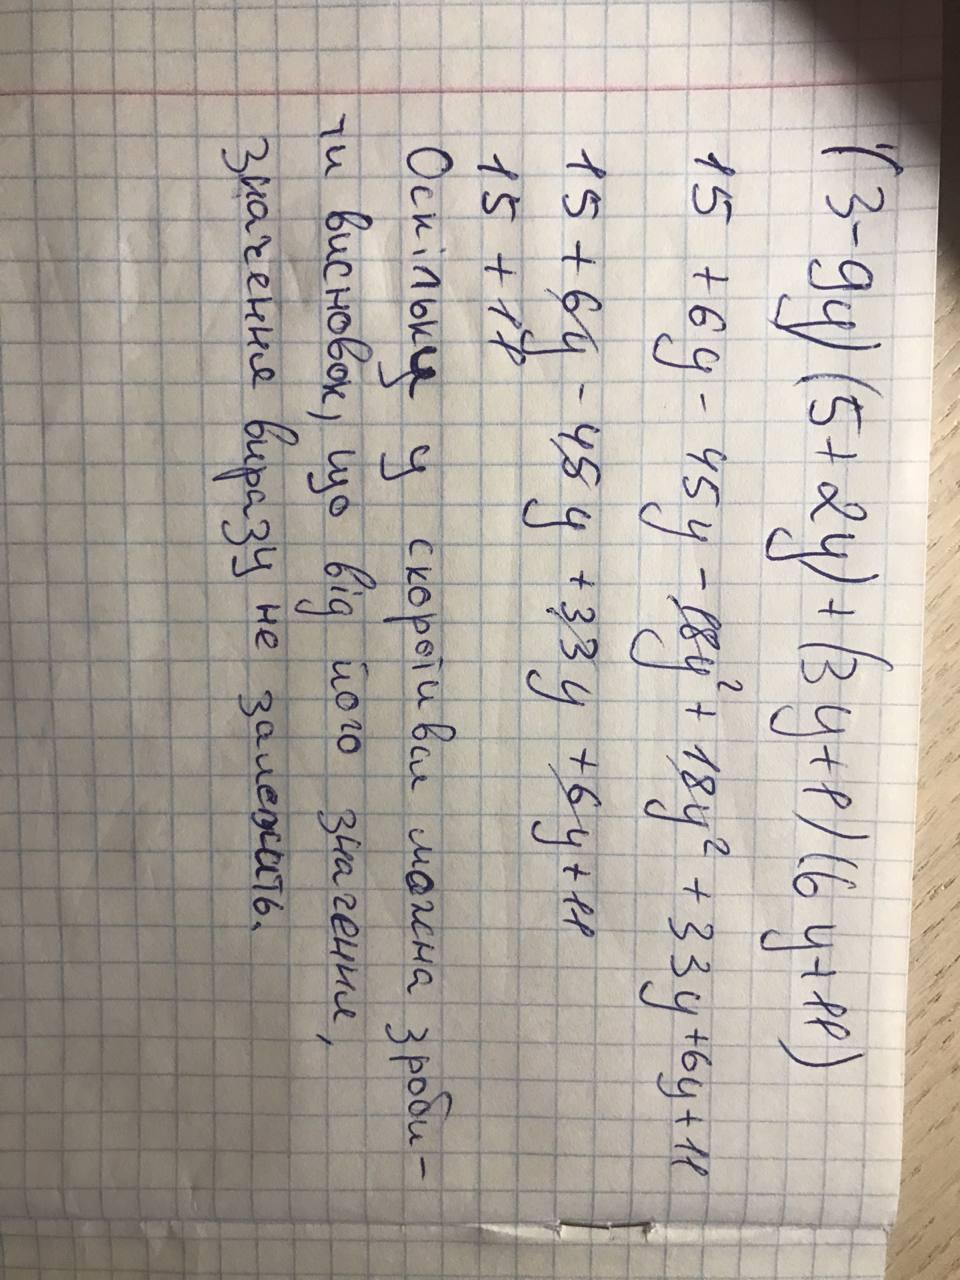 (3-9y)(5+2y)+(3y+1)(6y+11)
15 +6y - 45y - 18y² + 18y² + 33y+6y+11
15 + 6y - 45y +33y +6y+11
15 +11
Оскільки y скоротився можна зроби-
ти висновок, що від його значення,
Значення виразу не залежить.